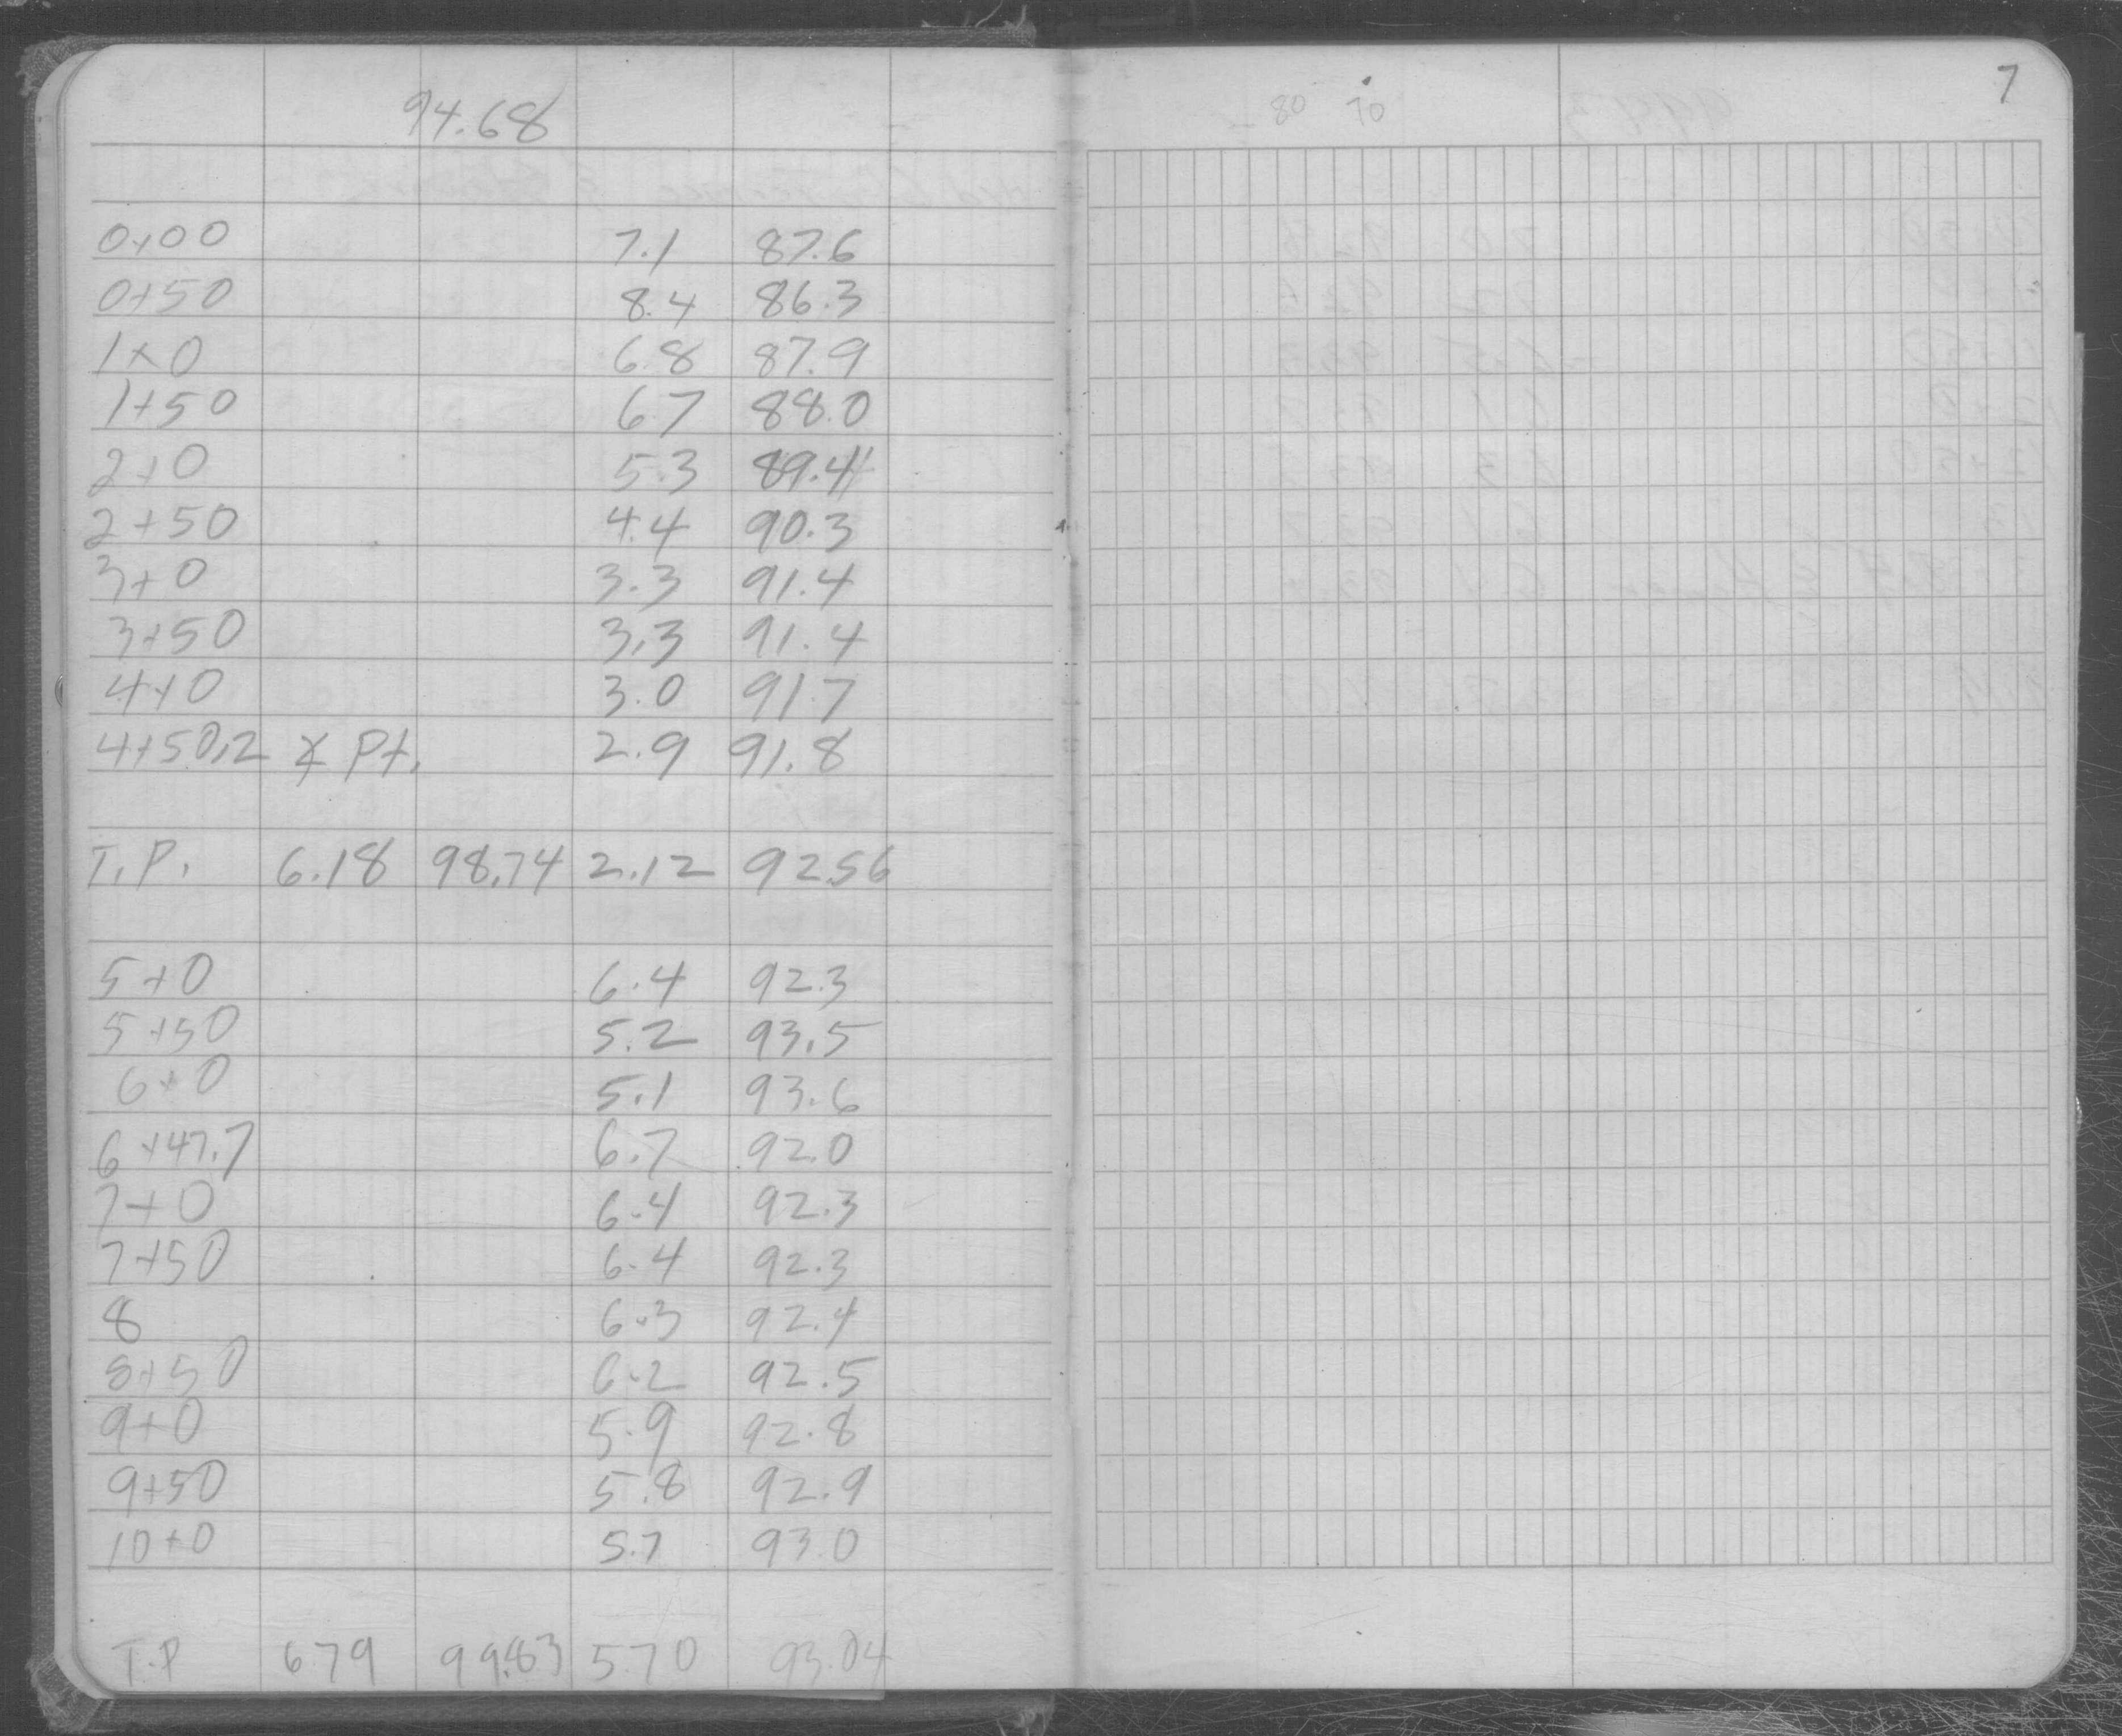 94.68
0+00 7.1 87.6
0+50 8.4 86.3
1+0 6.8 87.9
1+50 6.7 88.0
2+0 5.3 89.4
2+50 4.4 90.3
3+0 3.3 91.4
3+50 3.3 91.4
4+0 3.0 91.7
4+50.2 ⊼ Pt. 2.9 91.8
T.P. 6.18 98.74 2.12 92.56
5+0 6.4 92.3
5+50 5.2 93.5
6+0 5.1 93.6
6+47.7 6.7 92.0
7+0 6.4 92.3
7+50 6.4 92.3
8 6.3 92.4
8+50 6.2 92.5
9+0 5.9 92.8
9+50 5.8 92.9
10+0 5.7 93.0
T.P 6.79 99.83 5.70 93.04
80 70
7